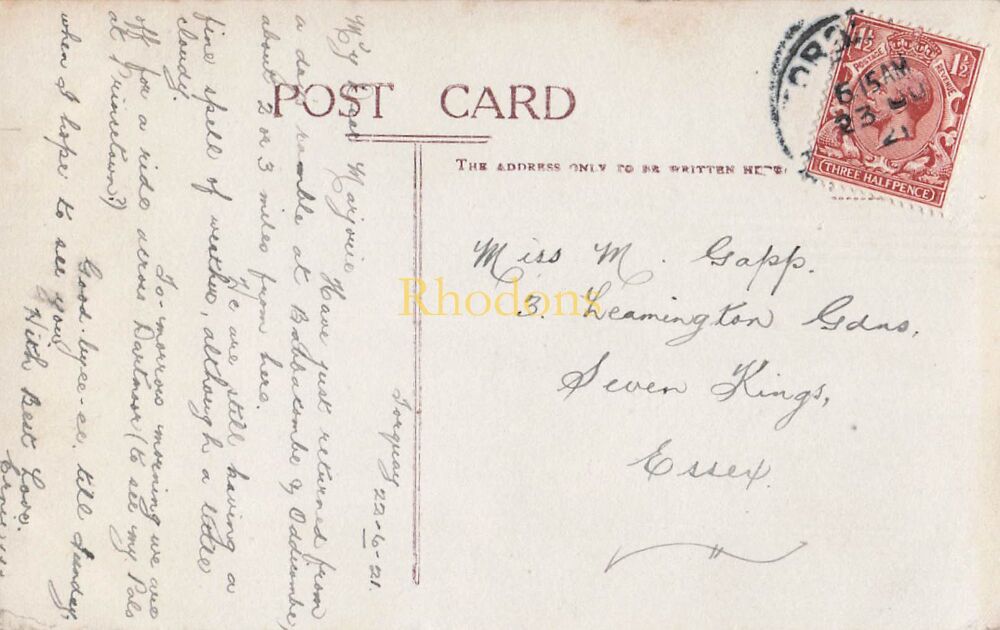 POST CARD
THE ADDRESS ONLY TO BE WRITTEN HERE.
1½ 1½
POSTAGE REVENUE
THREE HALFPENCE
6.15 AM
23 JU
21
Torquay
22-6-21.
My Dear Marjorie
Have just returned from
a day ramble at Babbacombe & Oddicombe,
about 2 or 3 miles from here.
We are still having a
fine spell of weather, although a little
cloudy.
To-morrow morning we are
off for a ride across Dartmoor (to see my Pals
at Princetown?)
Good-bye-ee. till Sunday,
when I hope to see you,
With Best Love.
Miss M. Gapp.
3. Leamington Gdns,
Seven Kings,
Essex.
Rhodons